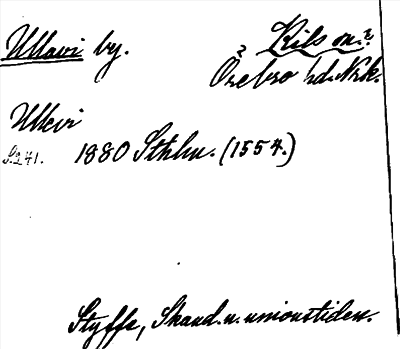 Ullavi by. Kils sn.?
? Örebro hd. Nrk.
Ullevi
S. 241. 1880 Sthlm. (1554.)
Styffe, Skand. u. unionstiden.